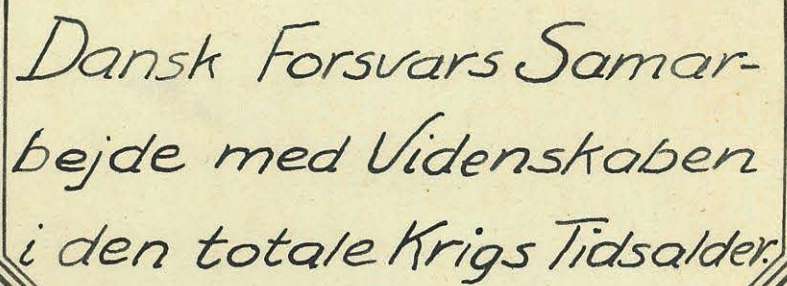 Dansk Forsvars Samar-
bejde med Videnskaben
i den totale Krigs Tidsalder.